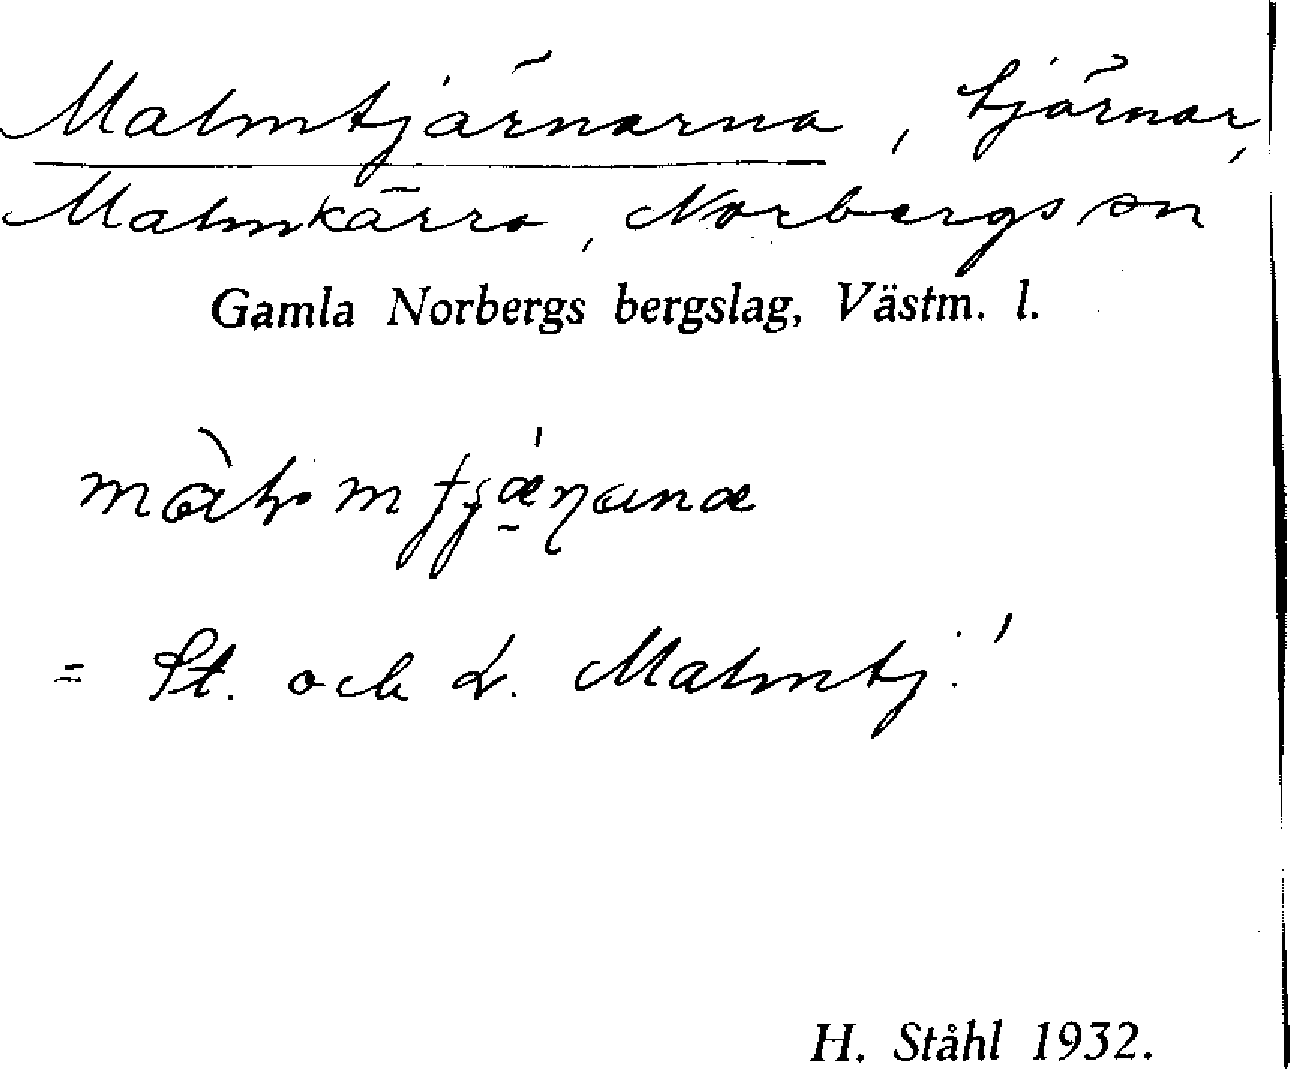 Malmtjärnarna, tjärnar,
Malmkärra, Norbergs sn
Gamla Norbergs bergslag, Västm. l.
= St. och L. Malmtj.
H. Ståhl 1932.